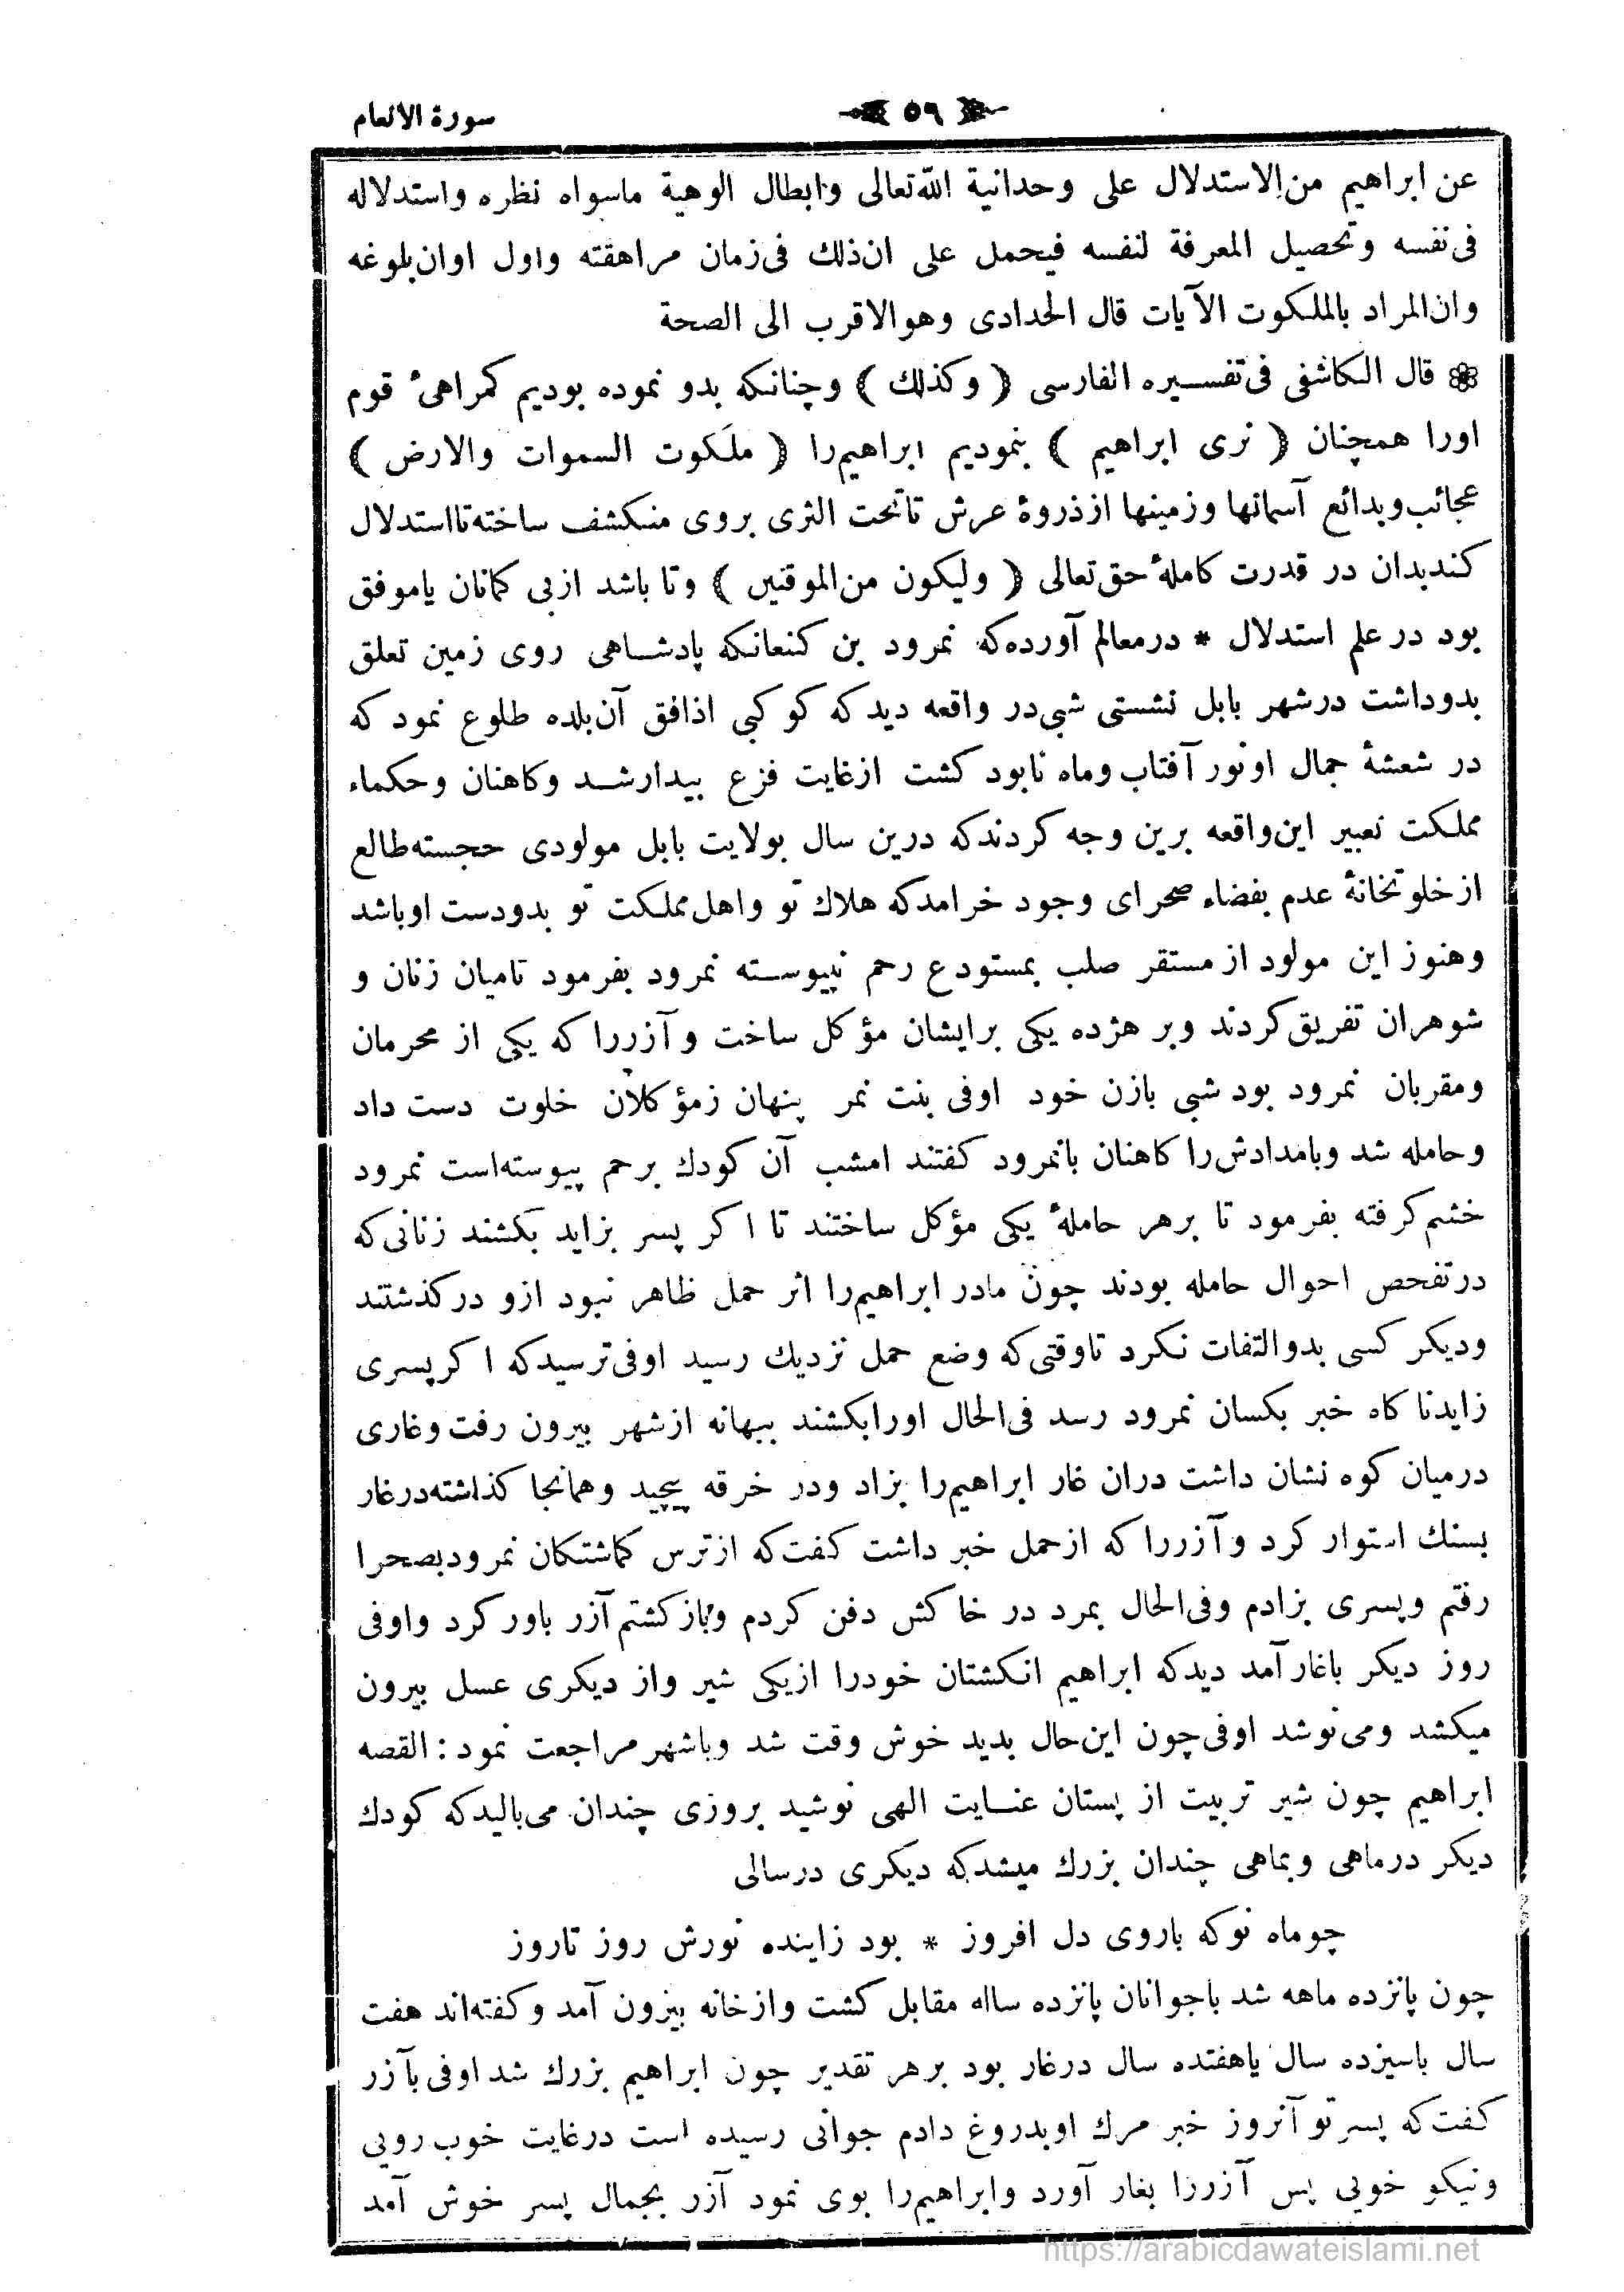 سورة الانعام
٥٩
عن ابراهيم من الاستدلال على وحدانية الله تعالى وابطال الوهية ماسواه نظره واستدلاله
فى نفسه وتحصيل المعرفة لنفسه فيحمل على ان ذلك فى زمان مراهقته واول اوان بلوغه
وان المراد بالملكوت الآيات قال الحدادى وهو الاقرب الى الصحة
قال الكاشفى فى تفسيره الفارسى ( وكذلك ) وچنانكه بدو نموده بوديم كمراهئ قوم
اورا همچنان ( نرى ابراهيم ) بنموديم ابراهيم را ( ملكوت السموات والارض )
عجائب وبدائع آسمانها وزمينها از ذروۀ عرش تا تحت الثرى بروى منكشف ساخته تا استدلال
كند بدان در قدرت كاملۀ حق تعالى ( وليكون من الموقنين ) وتا باشد از بى كمانان يا موفق
بود در علم استدلال * در معالم آورده كه نمرود بن كنعانكه پادشاهى روى زمين تعلق
بدو داشت در شهر بابل نشستى شبى در واقعه ديد كه كوكبى اذافق آن بلده طلوع نمود كه
در شعشۀ جمال او نور آفتاب وماه نابود كشت از غايت فزع بيدار شد وكاهنان وحكماء
مملكت تعبير اين واقعه برين وجه كردند كه درين سال بولايت بابل مولودى حجسته طالع
از خلوتخانۀ عدم بفضاء صحراى وجود خرامد كه هلاك تو واهل مملكت تو بدودست او باشد
وهنوز اين مولود از مستقر صلب بمستودع رحم نپيوسته نمرود بفرمود تا ميان زنان و
شوهران تفريق كردند وبر هژده يكى برايشان مؤكل ساخت وآزررا كه يكى از محرمان
ومقربان نمرود بود شبى بازن خود اوفى بنت نمر پنهان زمؤكلان خلوت دست داد
وحامله شد وبامدادش را كاهنان بانمرود كفتند امشب آن كودك برحم پيوسته است نمرود
خشم كرفته بفرمود تا برهر حاملۀ يكى مؤكل ساختند تا اكر پسر بزايد بكشند زنانى كه
در تفحص احوال حامله بودند چون مادر ابراهيم را اثر حمل ظاهر نبود ازو در كذشتند
وديكر كسى بدو التفات نكرد تا وقتى كه وضع حمل نزديك رسيد اوفى ترسيد كه اكر پسرى
زايد ناكاه خبر بكسان نمرود رسد فى الحال اورا بكشند ببهانه از شهر بيرون رفت وغارى
درميان كوه نشان داشت دران غار ابراهيم را بزاد ودر خرقه پيچيد وهمانجا كذاشته در غار
بسنك استوار كرد وآزررا كه از حمل خبر داشت كفت كه از ترس كماشتكان نمرود بصحرا
رفتم وپسرى بزادم وفى الحال بمرد در خاكش دفن كردم وباز كشتم آزر باور كرد واوفى
روز ديكر باغار آمد ديد كه ابراهيم انكشتان خودرا از يكى شير واز ديكرى عسل بيرون
ميكشد ومى نوشد اوفى چون اين حال بديد خوش وقت شد وباشهر مراجعت نمود : القصه
ابراهيم چون شير تربيت از پستان عنايت الهى نوشيد بروزى چندان مى باليد كه كودك
ديكر درماهى وبماهى چندان بزرك ميشد كه ديكرى درسالى
چو ماه نو كه باروى دل افروز * بود زاينده نورش روز تا روز
چون پانزده ماهه شد باجوانان پانزده ساله مقابل كشت واز خانه بيرون آمد وكفته اند هفت
سال باسيزده سال ياهفتده سال درغار بود برهر تقدير چون ابراهيم بزرك شد اوفى باآزر
كفت كه پسر تو آنروز خبر مرك او بدروغ دادم جوانى رسيده است درغايت خوب رويى
ونيكو خويى پس آزررا بغار آورد وابراهيم را بوى نمود آزر بجمال پسر خوش آمد
https://arabicdawateislami.net